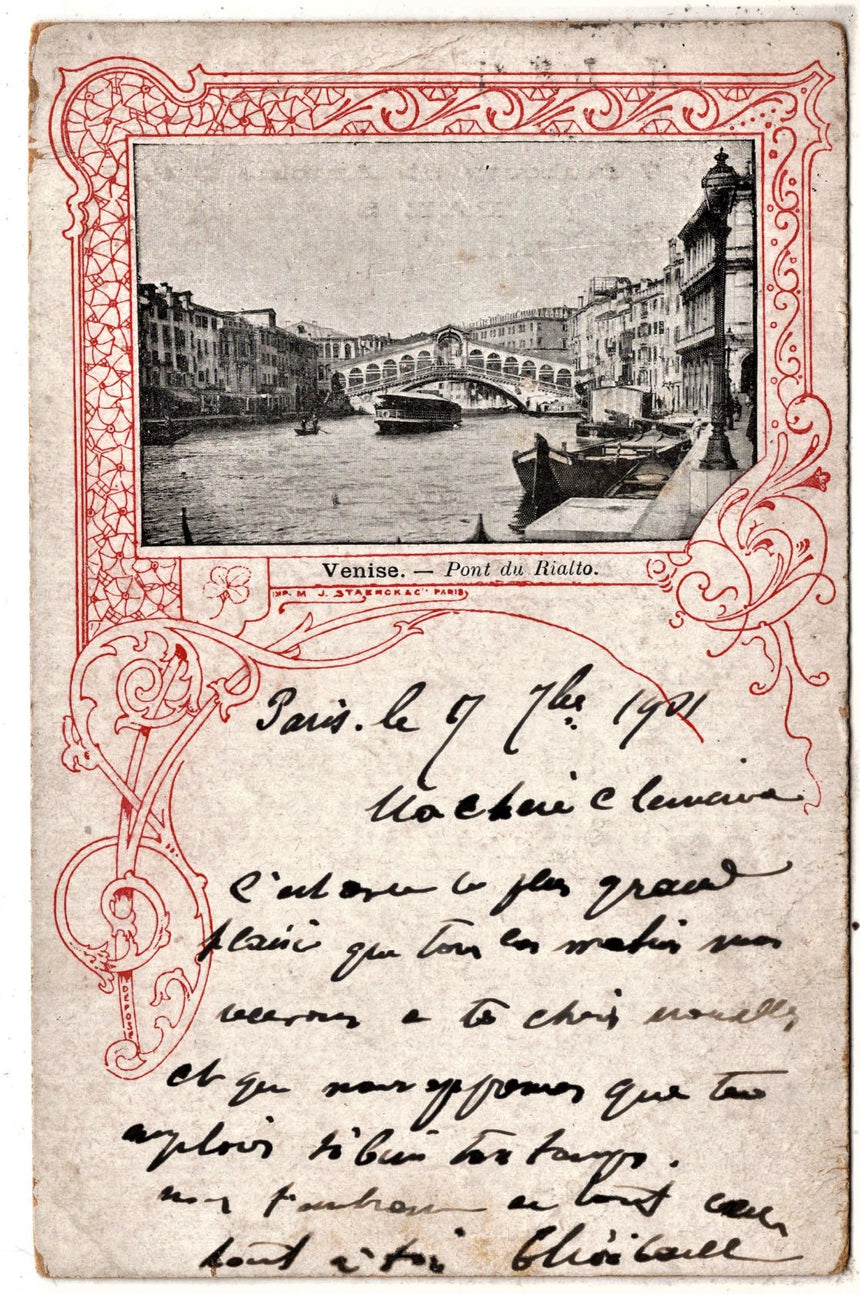 Venise. — Pont du Rialto.
IMP. M. J. STAERCK & Cie PARIS
DEPOSE
Paris. le 7 7bre 1901
Ma chère Clemence
C'est avec le plus grand
plaisir que tous les matins nous
recevons de tes chers nouvelles
et que nous apprenons que tu
emplois si bien ton temps.
nous t'embrassons de tout cœur
tout à toi